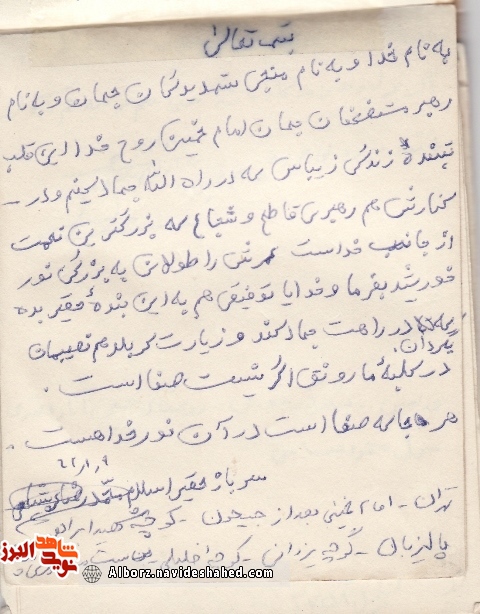 بسمه تعالی
به نام خدا و به نام منجی ستمدیدگان جهان و به نام
رهبر مستضعفان جهان امام خمین روح خدا این قلب
تپنده زندگی زیباس که در راه الله جهاد کنیم و در
کنارش هم رهبری قاطع و شجاع که بزرگترین نعمت
از جانب خداست عمرش را طولانی به بزرگی نور
خورشید بفرما و خدایا توفیقی هم به این بنده فقیر بده
که در راهت جهاد کند و زیارت کربلا هم نصیبمان
بگردان.
در کلبه ما رونق اگر نیست صفا است.
هر جا که صفا است در آن نور خدا هست.
۶۲/۱/۹
سرباز حقیر اسلام محمد
تهران - امام خمینی بعد از جیحون - کوچه شهید
پالیزبان - کوچه یزدانی - کوچه
شاهد
نوید
البرز
Alborz.navideshahed.com